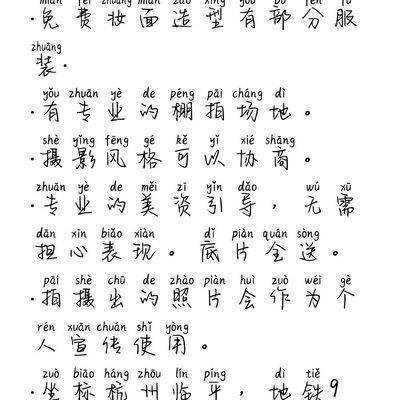 ·免费妆面造型有部分服
zhuāng
装.
yǒu zhuān yè de péng pāi cháng dì
·有专业的棚拍场地。
shè yǐng fēng gé kě yǐ xié shāng
·摄影风格可以协商。
zhuān yè de měi zī yǐn dǎo wú xū
·专业的美资引导，无需
dān xīn biǎo xiàn dǐ piàn quán sòng
担心表现。底片全送。
pāi shè chū de zhào piàn huì zuò wéi gè
·拍摄出的照片会作为个
rén xuān chuán shǐ yòng
人宣传使用。
zuò biāo háng zhōu lín píng dì tiě
·坐标杭州临平，地铁9